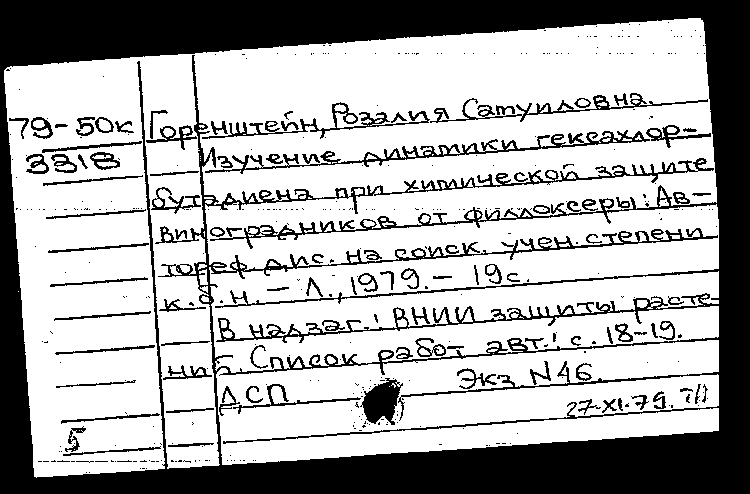 79-50к Горенштейн, Розалия Сатуиловна.
3318 Изучение динамики гексахлор-
бутадиена при химической защите
виноградников от филлоксеры: Ав-
тореф. дис. на соиск. учен. степени
к. б. н. – Л., 1979. – 19 с.
В надзаг.: ВНИИ защиты расте-
ний. Список работ авт.: с. 18-19.
ДСП. Экз N46.
5 27-XI-79.